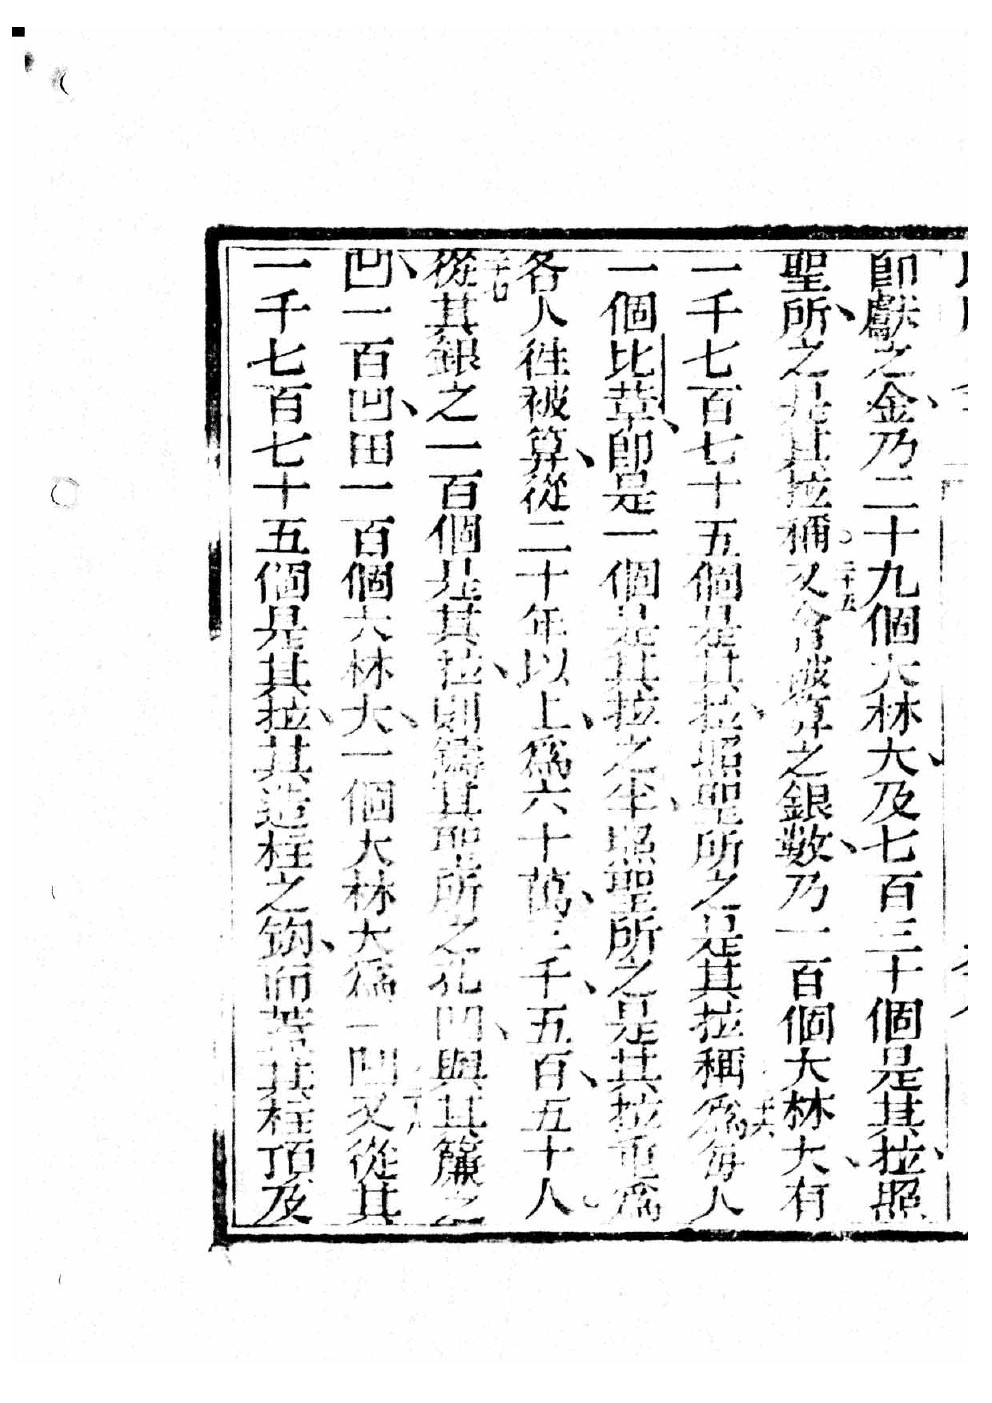 即獻之金乃二十九個大林大及七百三十個是其拉照
聖所之是其拉稱二十五又會被算之銀數乃一百個大林大有
一千七百七十五個是其拉照聖所之是其拉稱二十六爲每人
一個比革即是一個是其拉之半照聖所之是其拉重爲
各人徃被算從二十年以上爲六十萬三千五百五十人
二十七從其銀之一百個是其拉則鑄其聖所之凹與其簾之
凹一百凹由一百個大林大一個大林大爲一凹二十八又從其
一千七百七十五個是其拉其造柱之鈎而蓋其柱頂及